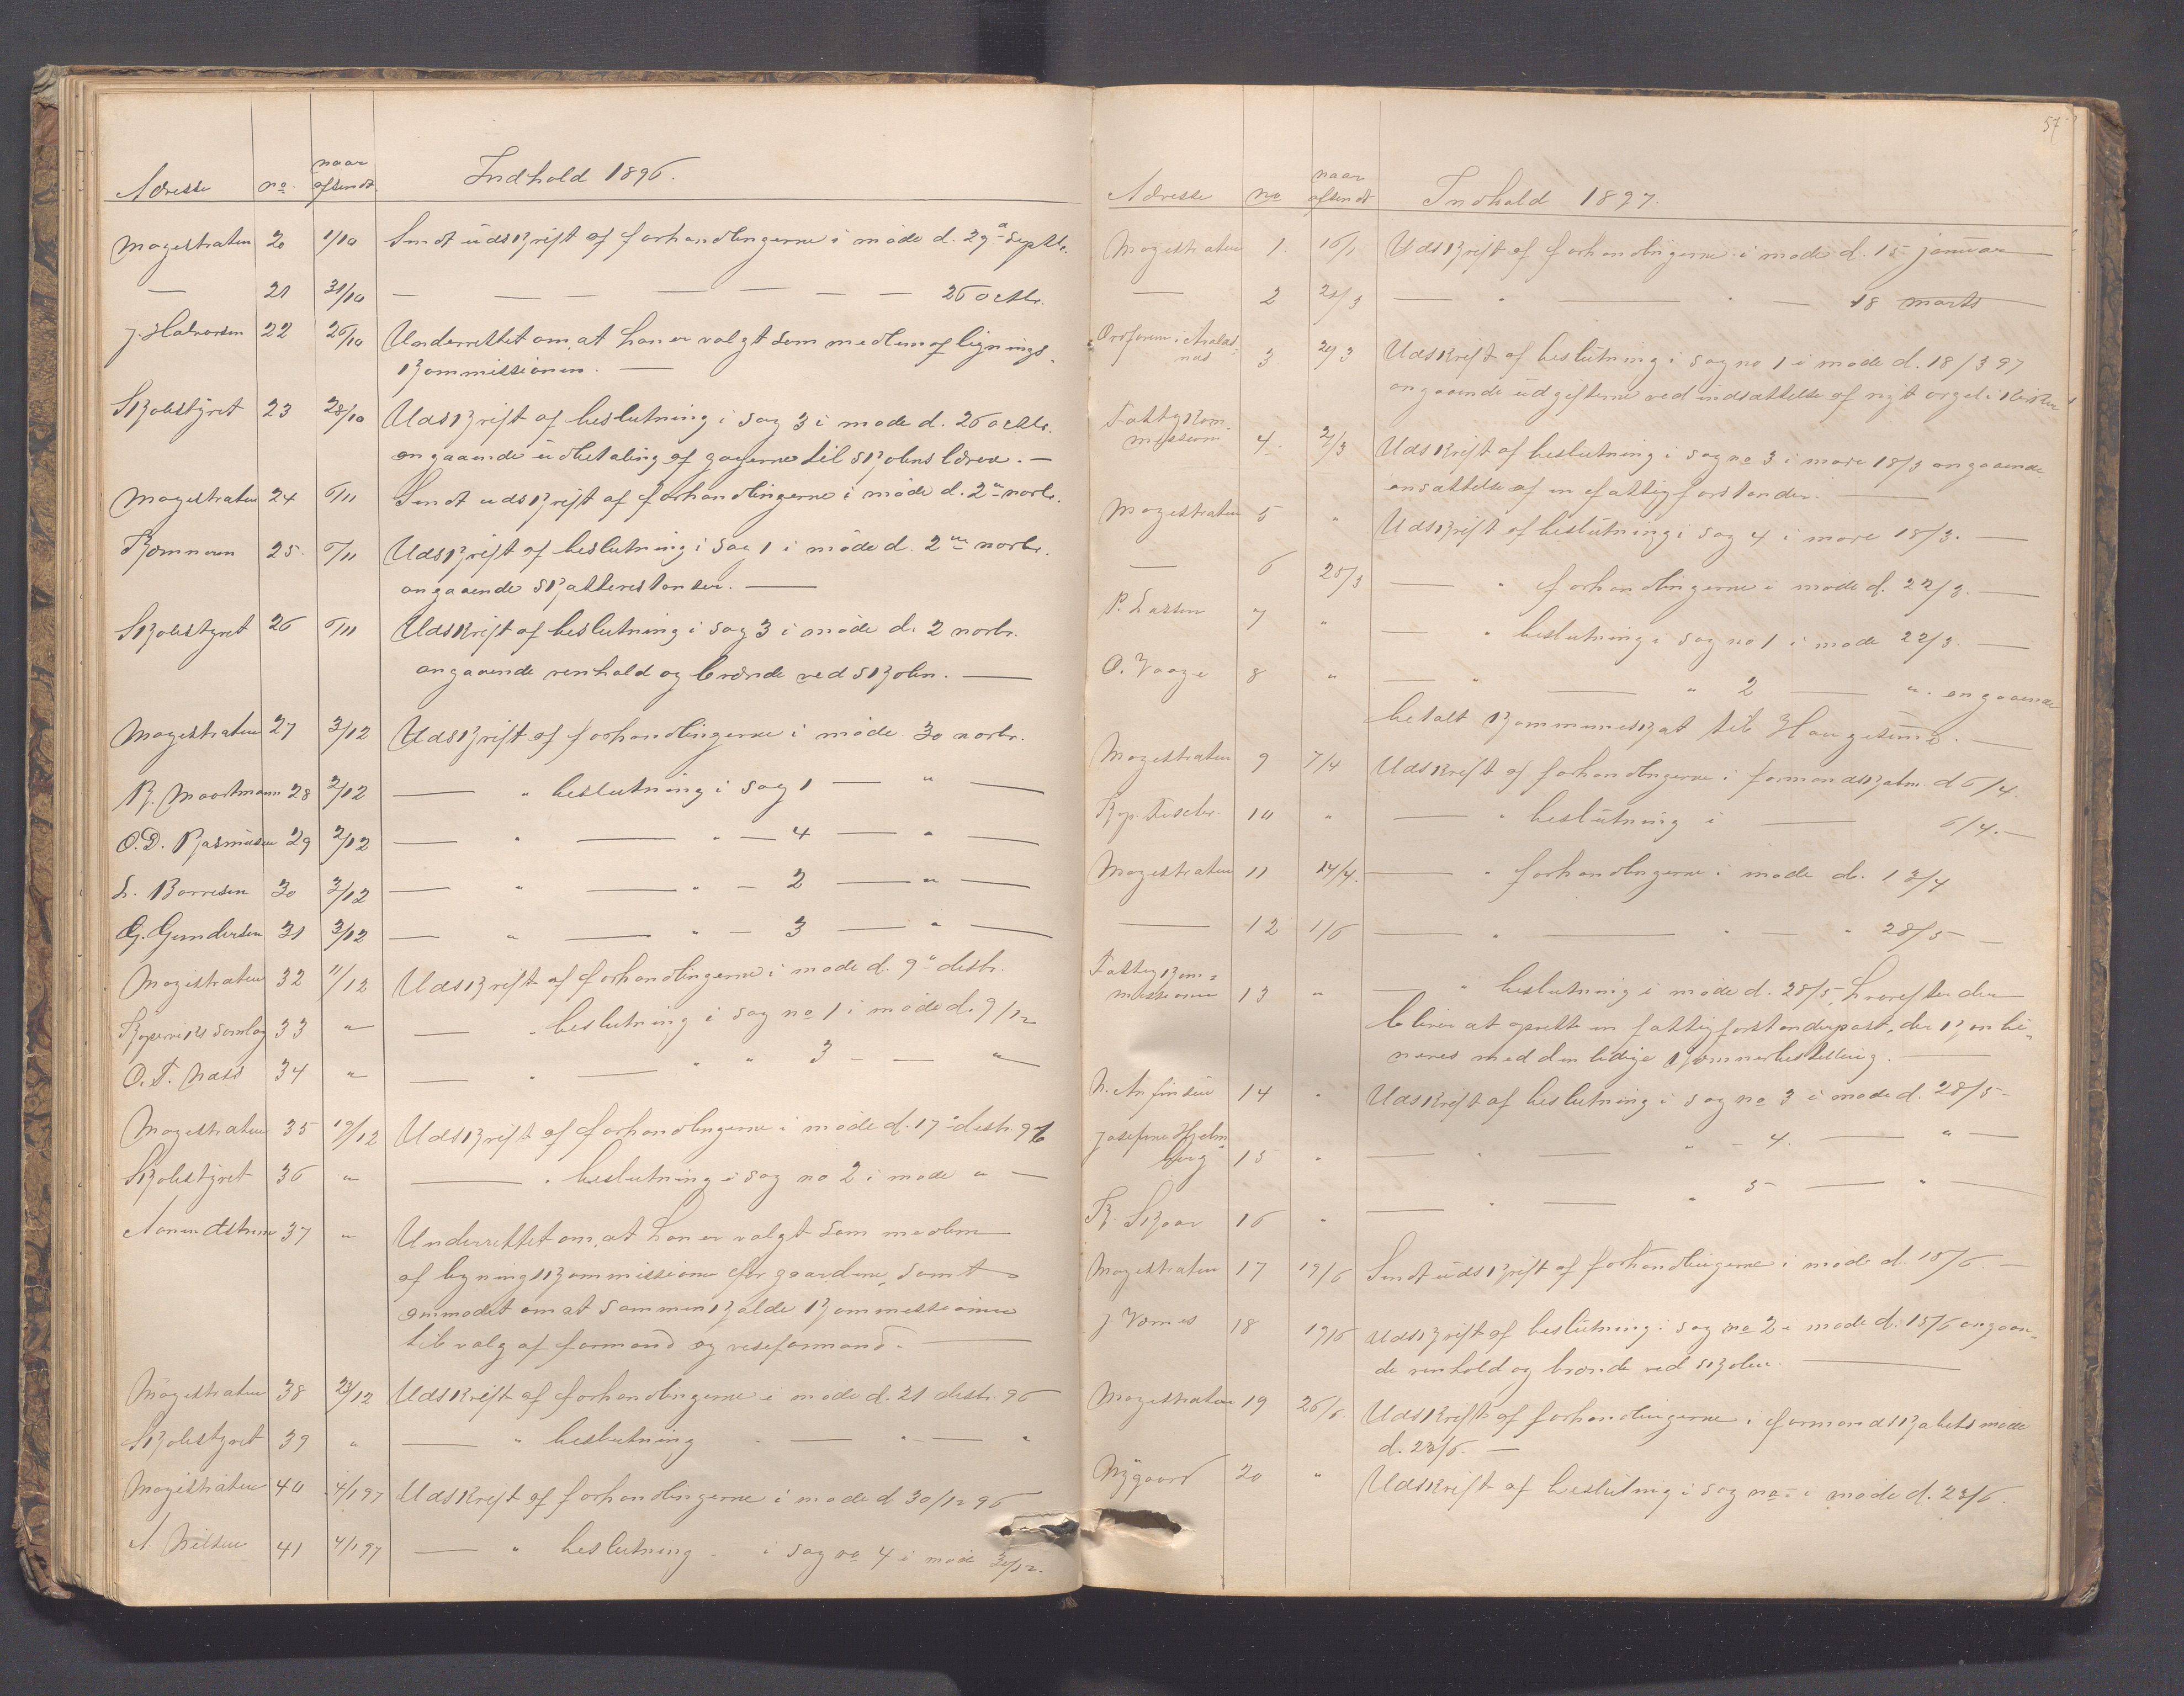 Adresse no. naar afsendt. Indhold 1896.
Magistraten 20 1/10 Sendt udskrift af forhandlingerne i møde d. 29de septbr.
— 21 31/10 — — — — — — — 26 octbr.
J. Halvorsen 22 26/10 Underrettet om, at han er valgt som medlem af lignings-
kommissionen. —
Skolestyret 23 28/10 Udskrift af beslutning i sag 3 i møde d. 26 octbr.
angaaende udbetaling af gagerne til skolens lærere. —
Magistraten 24 6/11 Sendt udskrift af forhandlingerne i møde d. 2den novbr.
Kæmneren 25. 6/11 Udskrift af beslutning i sag 1 i møde d. 2den novbr.
angaaende skatterestanser. —
Skolestyret 26 6/11 Udskrift af beslutning i sag 3 i møde d. 2 novbr.
angaaende renhold og brænde ved skolen. —
Magistraten 27 3/12 Udskrift af forhandlingerne i møde 30 novbr.
R. Maartmann 28 2/12 — " beslutning i sag 1 — " —
O. D. Rasmusen 29 2/12 — " — " — 4 — " —
L. Børresen 30 3/12 — " — " — 2 — " —
G. Gundersen 31 3/12 — " — " — 3 — " —
Magistraten 32 11/12 Udskrift af forhandlingerne i møde d. 9de desbr.
Kopervik samlag 33 " — " beslutning i sag no 1 i møde d. 9/12
O. T. Næss 34 " — " — " " 3 — — "
Magistraten 35 19/12 Udskrift af forhandlingerne i møde d. 17de desbr. 96
Skolestyret 36 " — " beslutning i sag no 2 i møde " —
37 " Underrettet om, at han er valgt som medlem
af ligningskommissionen for gaardene, samt
anmodet om at sammenkalde kommissionen
til valg af formand og viseformand. —
Magistraten 38 23/12 Udskrift af forhandlingerne i møde d. 21 desbr. 96
Skolestyret 39 " — " beslutning — " — "
Magistraten 40 4/1 97 Udskrift af forhandlingerne i møde d 30/12 96
A. Nilsen 41 4/1 97 — " beslutning - i sag no 4 i møde 30/12.
57
Adresse no naar afsendt Indhold 1897.
Magistraten 1 16/1 Udskrift af forhandlingerne i møde d. 15 januar —
— 2 21/3 — " — " — 18 marts
Ordføreren i Avalds-
nes 3 21/3 Udskrift af beslutning i sag no 1 i møde d. 18/3 97
angaaende udgifterne ved indsættelse af nyt orgel i kirken
Fattigkom-
missionen 4. 21/3 Udskrift af beslutning i sag no 3 i møde 18/3 angaaende
ansættelse af en fattigforstander. —
Magistraten 5 " Udskrift af beslutning i sag 4 i møde 18/3. —
— 6 25/3 — " forhandlingerne i møde d. 22/3. —
P. Lassen 7 " — " beslutning i sag no 1 i møde 22/3. —
O. Vaage 8 " — " — " 2 — " angaaende
betalt kommuneskat til Haugesund. —
Magistraten 9 7/4 Udskrift af forhandlingerne i formandskabm. d 6/4.
Kap. Fischer 10 " — " beslutning i — 6/4. —
Magistraten 11 14/4. — " forhandlingerne i møde d. 13/4
— 12 1/6 — " — " — " 28/5 —
Fattigkom-
missionen 13 " — " beslutning i møde d. 28/5, hvorefter der
bliver at oprette en fattigforstanderpost, der kombi-
neres med den ledige kæmnerbestilling. —
N. Anfinsen 14 " Udskrift af beslutning i sag no 3 i møde d. 28/5 —
Josefine Hjelm-
berg 15 " — " — " — 4. — " —
K. Skaar 16 " — " — " 5 — " —
Magistraten 17 19/6 Sendt udskrift af forhandlingerne i møde d. 15/6. —
J Vornes 18 19/6 Udskrift af beslutning i sag no 2 i møde d. 15/6 angaaen-
de renhold og brænde ved skolen. —
Magistraten 19 26/6. Udskrift af forhandlingerne i formandskabets møde
d. 23/6. —
Nygaard 20 " Udskrift af beslutning i sag no 1 i møde d. 23/6.